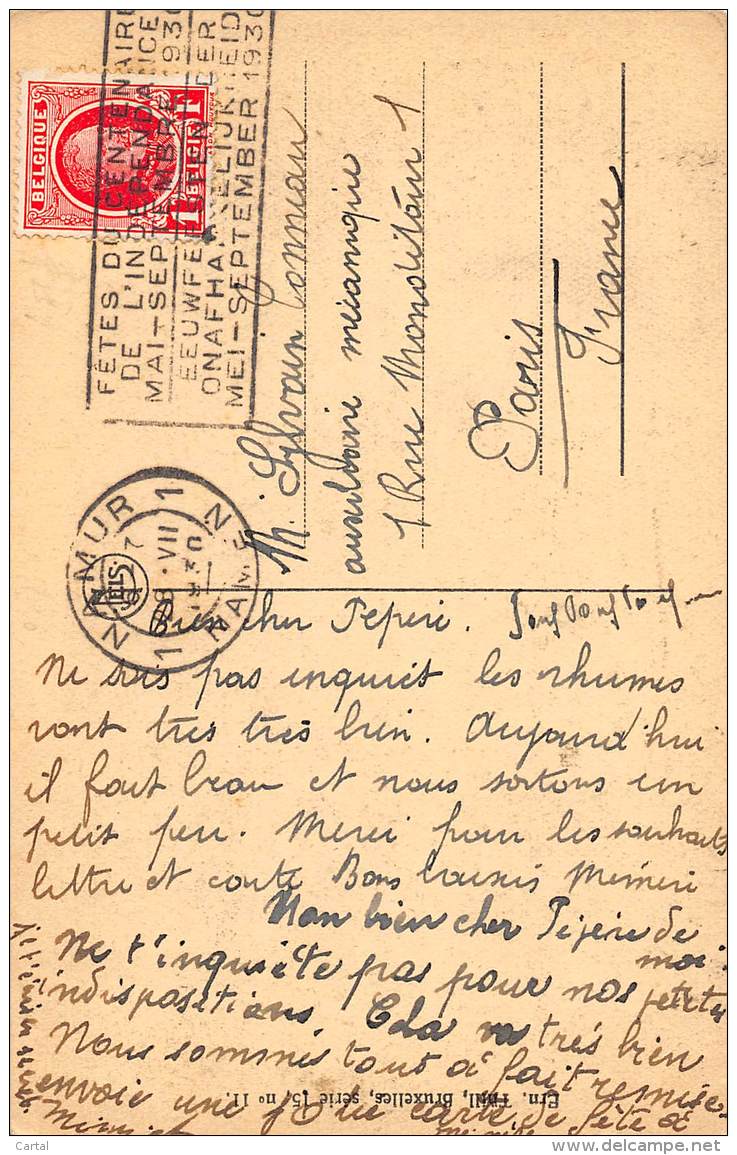 BELGIQUE
1F
BELGIË
FÊTES DU CENTENAIRE
DE L'INDEPENDANCE
MAI-SEPTEMBRE 1930
EEUWFEESTEN DER
ONAFHANKELIJKHEID
MEI-SEPTEMBER 1930
NAMUR 1
VII
1 NAMEN
M. Sylvain
auxiliaire mécanique
1 Rue
Paris
France
Bien cher Peperi.
Ne sois pas inquiet les rhumes
vont très très bien. Aujourd'hui
il fait beau et nous sortons un
petit peu. Merci pour les souhaits
lettre et carte Bons baisers Mémeri
Mon bien cher Pepere de
moi.
Ne t'inquiète pas pour nos petites
indispositions. Cela va très bien
Nous sommes tout à fait remise
envoie une jolie carte de fête à
Ern. Thill, Bruxelles, série 15, no 11.
Cartal
www.delcampe.net